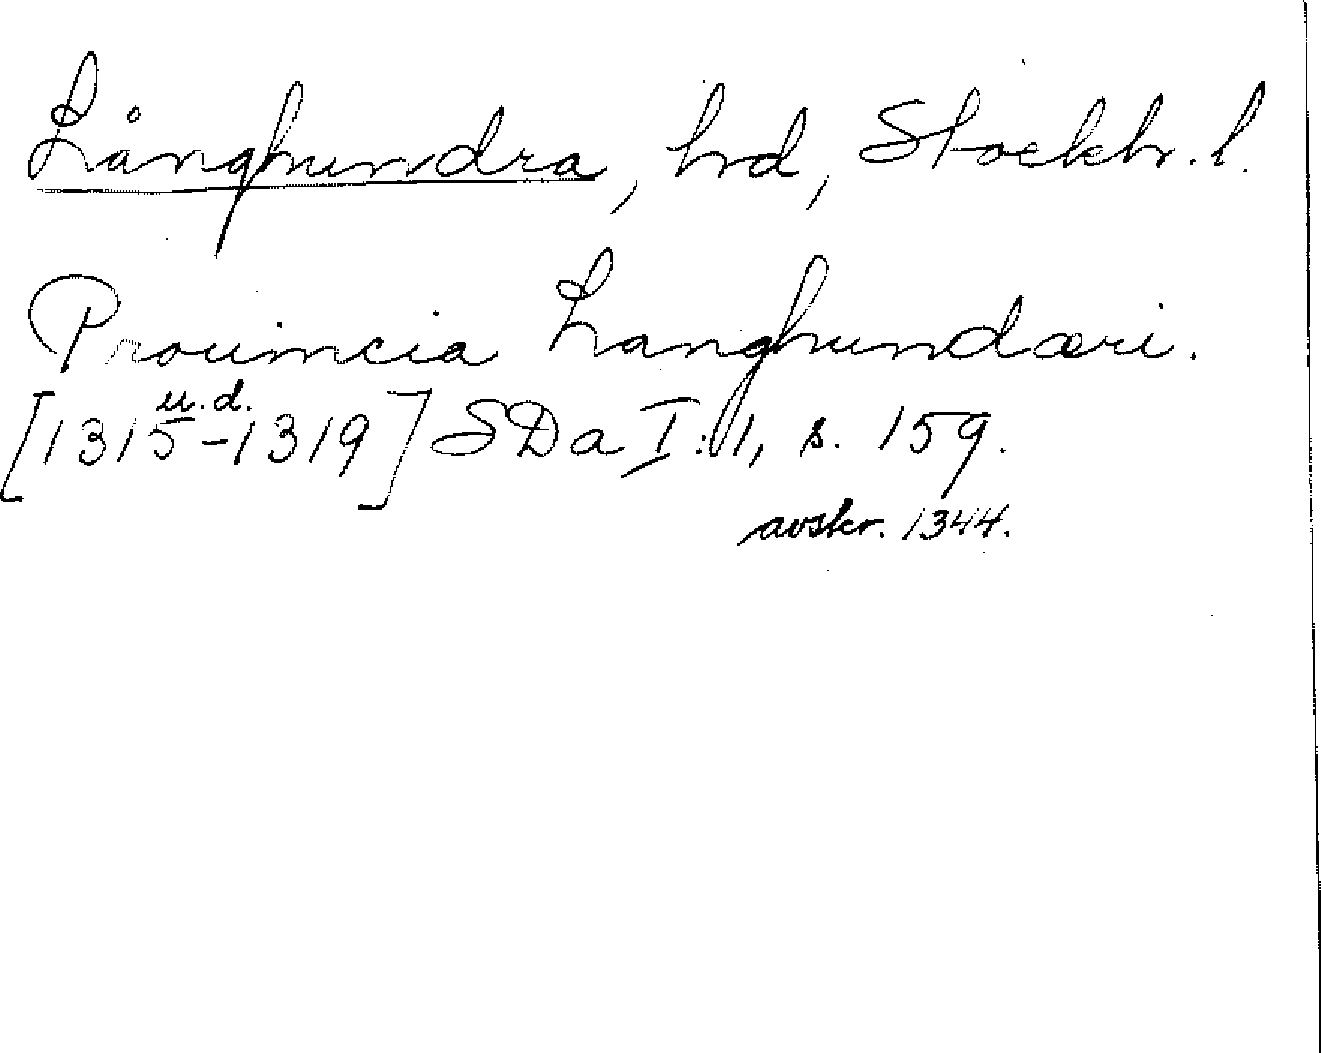 Långhundra, hd, Stockh. l.
Prouincia Langhundæri.
u. d.
[1315-1319] SDa I:1, s. 159.
avskr. 1344.